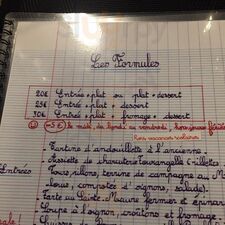 Les Formules
20€ Entrée + plat ou plat + dessert
25€ Entrée + plat + dessert
30€ Entrée + plat + fromage + dessert
-5€ le midi, du lundi au vendredi, hors jours fériés
hors vacances scolaires
Entrées
Tartine d'andouillette à l'ancienne.
Assiette de charcuterie tourangelle
terrine de campagne au
compotée d'oignons, salade).
Tarte au Sainte-Maure fermier et épinards
Soupe à l'oignon, croûtons et fromage.